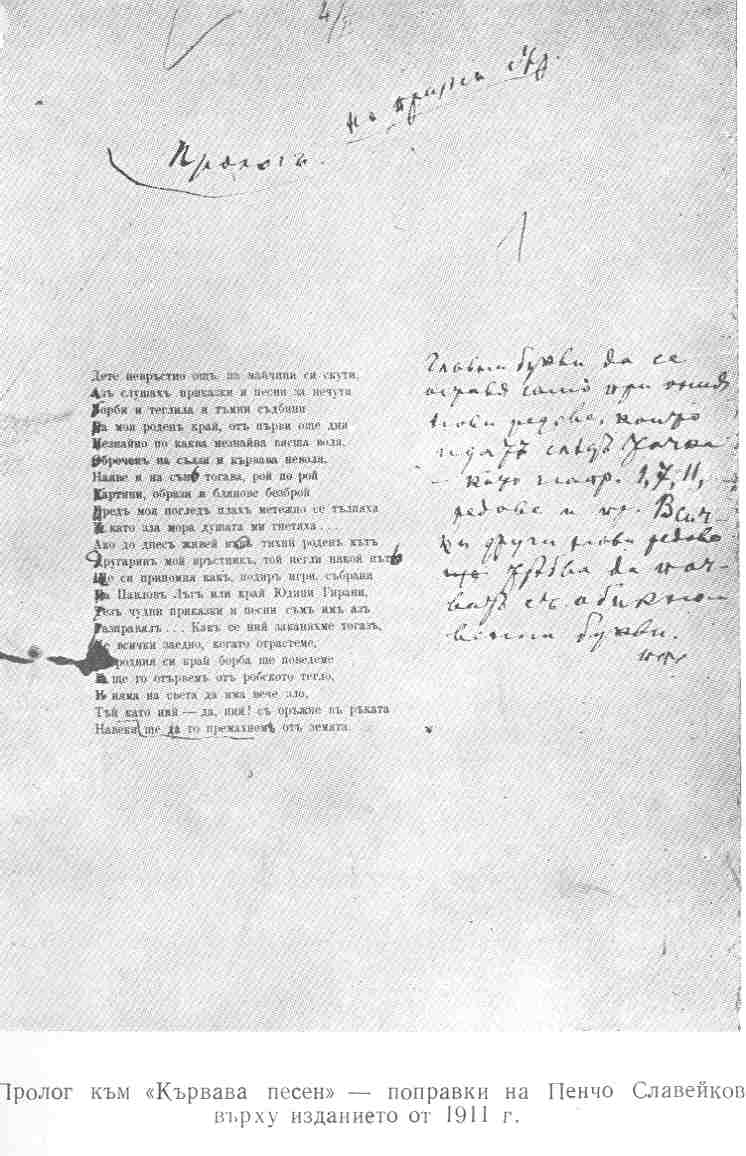 4/
на първа стр.
Прологъ.
1
Дете невръстно ощъ, на майчини си скути,
Азъ слушахъ приказки и песни за нечути
Борби и теглила и тъмни съдбини
На моя роденъ край, отъ първи още дни
Незнайно по каква незнайна висша воля,
Обреченъ на сълзи и кървава неволя.
Наяве и на сънъ тогава, рой по рой
Картини, образи и блянове безброй
Предъ моя погледъ плахъ метежно се тълпяха
И като зла мора душата ми гнетяха...
Ако до днесъ живей въ тихия роденъ кътъ
Другаринъ мой връстникъ, той негли някой пътъ
Ще си припомня какъ, подиръ игри, събрани
На Павловъ Лъгъ или край Юдини Гирани,
Тезъ чудни приказки и песни съмъ имъ азъ
Разправялъ... Какъ се ний заканяхме тогазъ,
Че всички заедно, когато отрастеме,
родния си край борба ще поведеме
И ще го отървемъ отъ робското тегло,
И няма на света да има вече зло,
Тъй като ний — да, ний! съ оръжие въ ръката
Навеки ще да го премахнемъ отъ земята.
Главни букви да се
оставя само при ония
нови редове, които
идатъ следъ точка
— като напр. 1, 7, 11,
редове и пр. Всич-
ки други нови редове
ще трѣбва да поч-
ватъ съ обикно-
вени букви.
Пролог към «Кървава песен» — поправки на Пенчо Славейков
върху изданието от 1911 г.